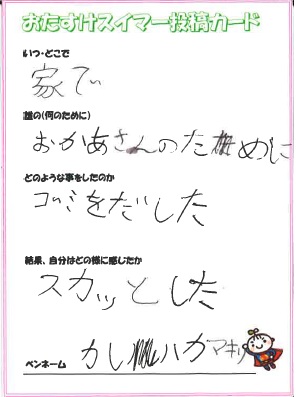 おたすけスイマー投稿カード
いつ・どこで
家で
誰の(何のために)
おかあさんのためめに
どのような事をしたのか
ゴミをだした
結果、自分はどの様に感じたか
スカッとした
ペンネーム
かしハカマキリ